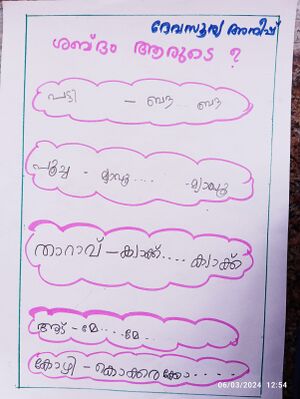 ദേവസൂര്യ അനീഷ്
ശബ്ദം ആരുടെ ?
പട്ടി - ബൗ... ബൗ
പൂച്ച - മ്യാവൂ.... -മ്യാവൂ
താറാവ് - ക്വാക്ക്.... ക്വാക്ക്
ആട് - മേ.... -മേ..
കോഴി - കൊക്കരക്കോ.....
06/03/2024 12:54